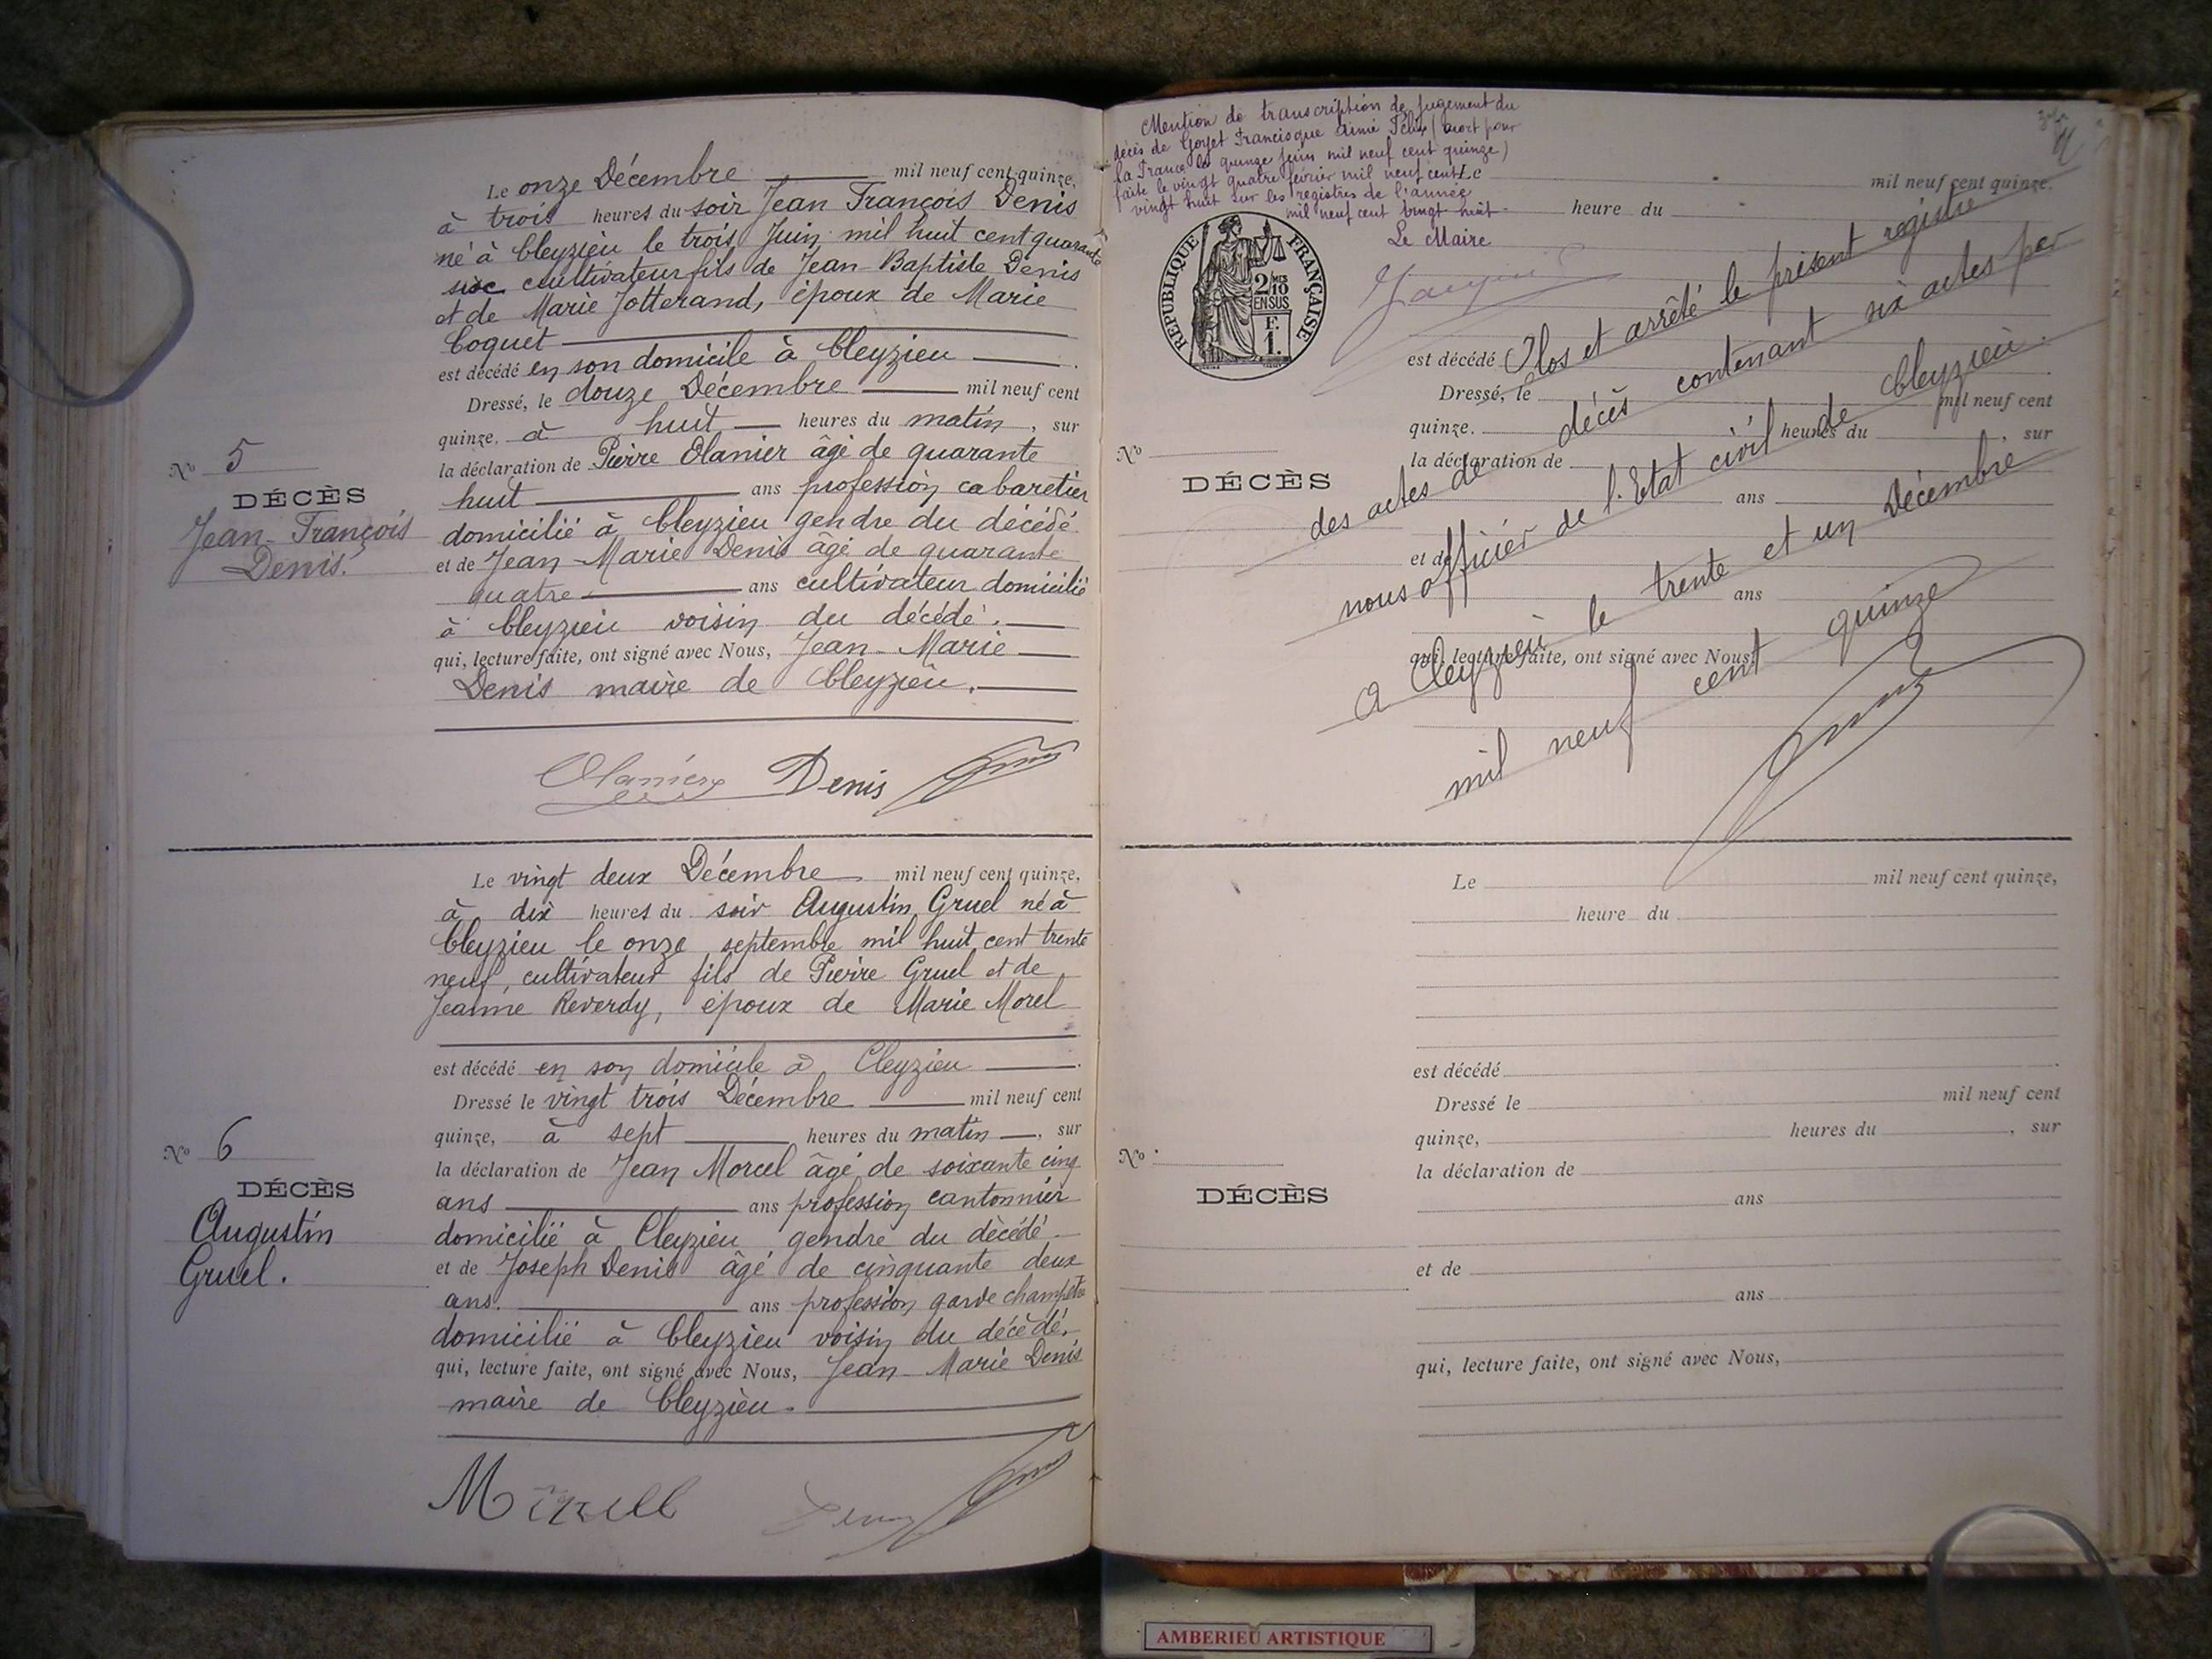 Le onze Décembre mil neuf cent quinze,
à trois heures du soir Jean François Denis
né à Cleyzieu le trois Juin mil huit cent quarante
six cultivateur fils de Jean-Baptiste Denis
et de Marie Jotterand, époux de Marie
Coquet
est décédé en son domicile à Cleyzieu
Dressé, le douze Décembre mil neuf cent
quinze, à huit heures du matin, sur
la déclaration de Pierre Olanier âgé de quarante
huit ans profession cabaretier
domicilié à Cleyzieu gendre du décédé
et de Jean-Marie Denis âgé de quarante
quatre ans cultivateur domicilié
à Cleyzieu voisin du décédé.
qui, lecture faite, ont signé avec Nous, Jean-Marie
Denis maire de Cleyzieu.
Olanier Denis
No 5
DÉCÈS
Jean-François
Denis.
Le vingt deux Décembre mil neuf cent quinze,
à dix heures du soir Augustin Gruel né à
Cleyzieu le onze septembre mil huit cent trente
neuf, cultivateur fils de Pierre Gruel et de
Jeanne Reverdy, époux de Marie Morel
est décédé en son domicile à Cleyzieu
Dressé le vingt trois Décembre mil neuf cent
quinze, à sept heures du matin, sur
la déclaration de Jean Morel âgé de soixante cinq
ans ans profession cantonnier
domicilié à Cleyzieu gendre du décédé
et de Joseph Denis âgé de cinquante deux
ans. ans profession garde champêtre
domicilié à Cleyzieu voisin du décédé.
qui, lecture faite, ont signé avec Nous, Jean-Marie Denis
maire de Cleyzieu.
No 6
DÉCÈS
Augustin
Gruel.
Mention de transcription de jugement du
décès de Goyet Francisque Aimé Félix (mort pour
la France le quinze juin mil neuf cent quinze)
faite le vingt quatre février mil neuf cent
vingt huit sur les registres de l'année
mil neuf cent vingt huit
Le Maire
RÉPUBLIQUE FRANÇAISE
2/10
EN SUS
F.
1.
Le mil neuf cent quinze.
heure du
est décédé
Dressé, le mil neuf cent
quinze. heures du , sur
la déclaration de
ans
et de
ans
qui, lecture faite, ont signé avec Nous,
Clos et arrêté le présent registre
des actes de décès contenant six actes par
nous officier de l'Etat civil de Cleyzieu.
A Cleyzieu le trente et un Décembre
mil neuf cent quinze
No
DÉCÈS
Le mil neuf cent quinze,
heure du
est décédé
Dressé le mil neuf cent
quinze, heures du , sur
la déclaration de
ans
et de
ans
qui, lecture faite, ont signé avec Nous,
No
DÉCÈS
AMBERIEU ARTISTIQUE